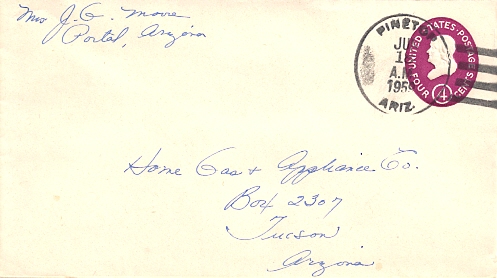 Mrs J. G. Moore
Portal, Arizona
ARIZ.
A.M.
UNITED STATES POSTAGE
4
FOUR CENTS
Home Gas & Appliance Co.
Box 2307
Tucson
Arizona